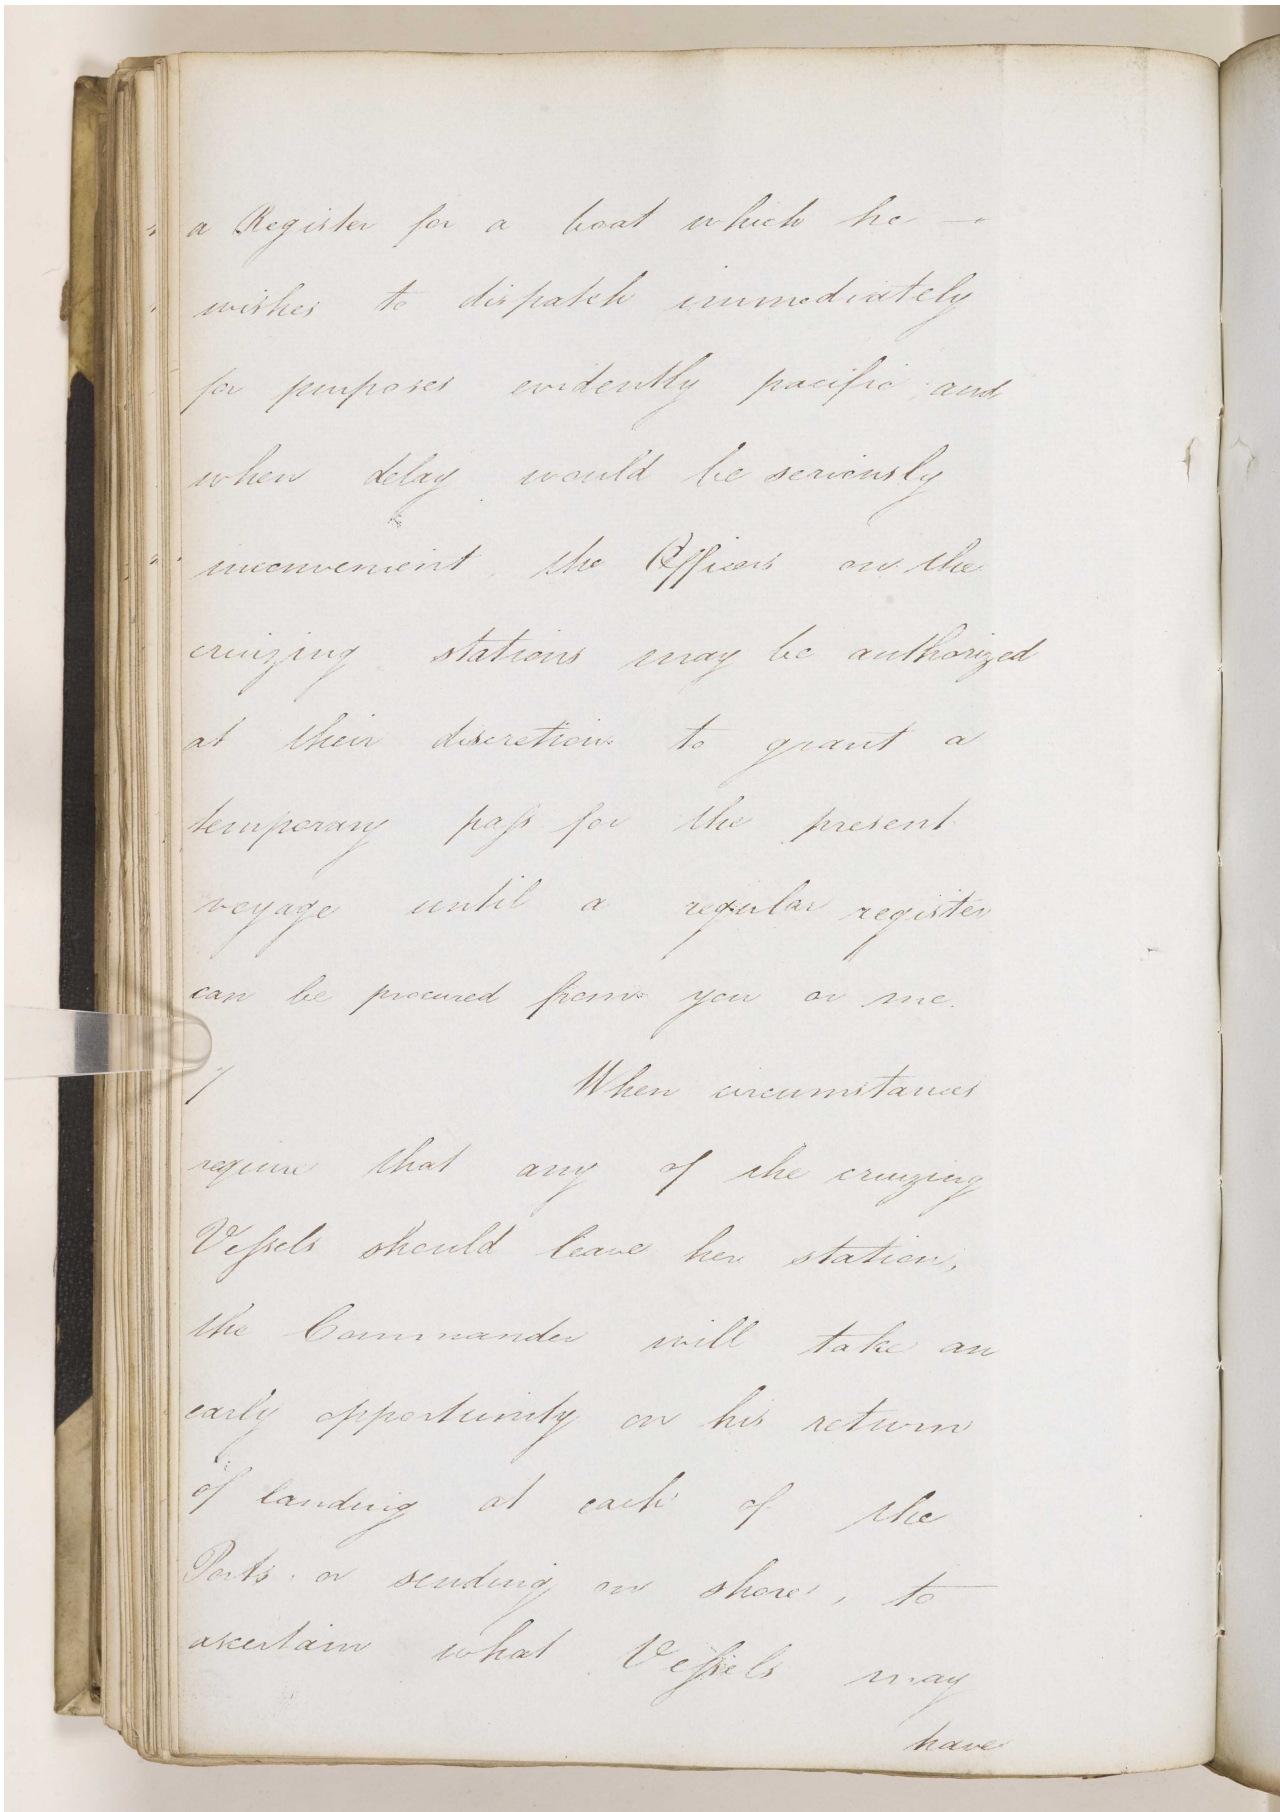 a Register for a boat which he —
wishes to dispatch immediately
for purposes evidently pacific and
when delay would be seriously
inconvenient, the Officers on the
cruizing stations may be authorized
at their discretion to grant a
temporary paſs for the present
voyage until a regular register
can be procured from you or me.
7 When circumstances
require that any of the cruizing
Veſsels should leave her station,
the Commander will take an
early opportunity on his return
of landing at each of the
Ports or sending on shore, to
ascertain what Veſsels may
have